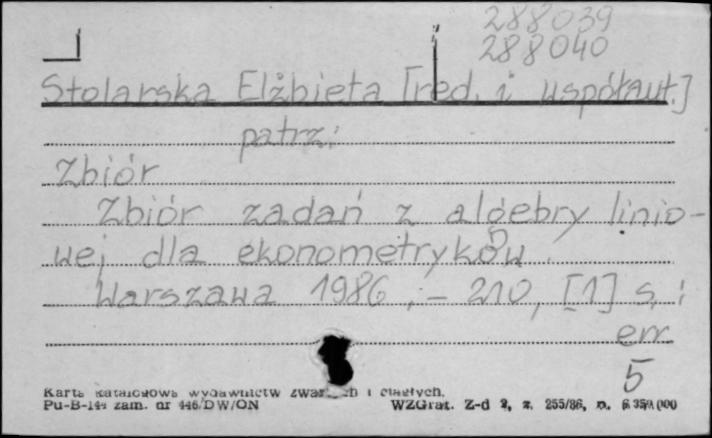 288039
288040
Stolarska Elżbieta [red. i współaut.]
patrz:
Zbiór
Zbiór zadań z algebry linio-
wej dla ekonometryków.
Warszawa 1986, - 210, [1] s.;
err.
5
Karta katalogowa wydawnictw zwartych i ciągłych.
Pu-B-144 zam. nr 446/DW/ON WZGraf. Z-d 2, z. 255/86, n.